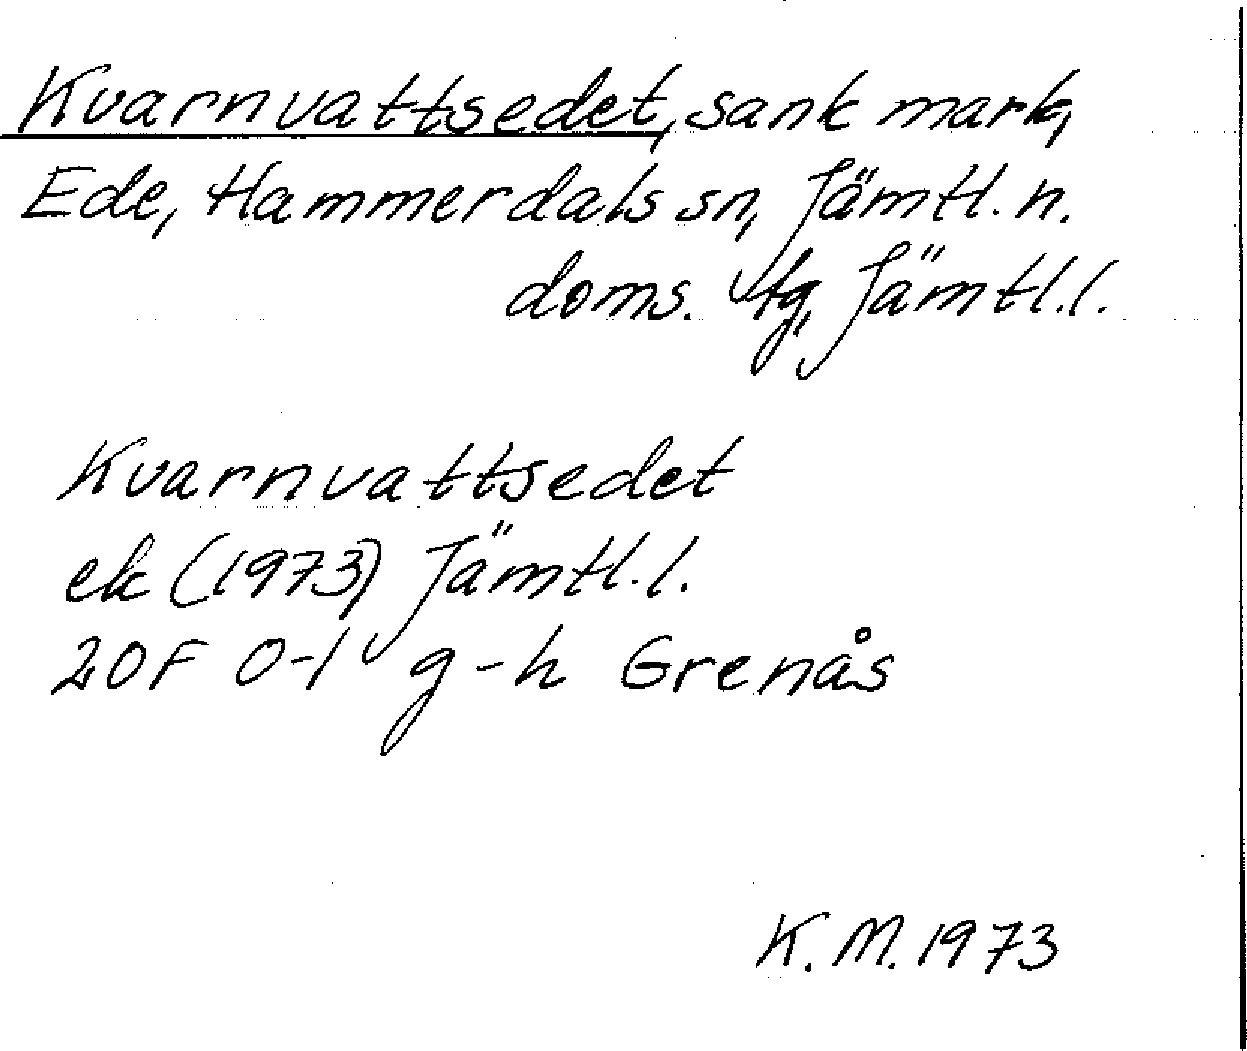 Kvarnvattsedet, sank mark,
Ede, Hammerdals sn, Jämtl. n.
doms. tg, Jämtl.l.
Kvarnvattsedet
ek (1973) Jämtl.l.
20F 0-1 g-h Grenås
K.M. 1973